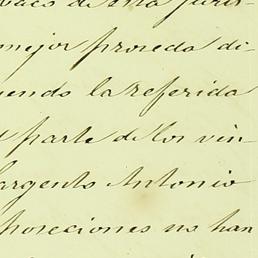 de esta juris-
mejor proceda di-
yendo la referida
parte de los vein-
Sargento Antonio
posiciones no han